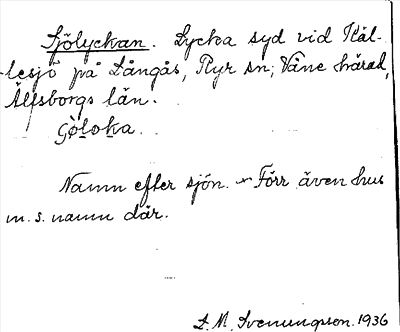 Sjölyckan. Lycka syd vid Häl-
lesjö på Långås, Ryr sn; Väne härad,
Älfsborgs län.
Gòloka.
Namn efter sjön. — Förr även hus
m. s. namn där.
S. M. Svenungsson. 1936